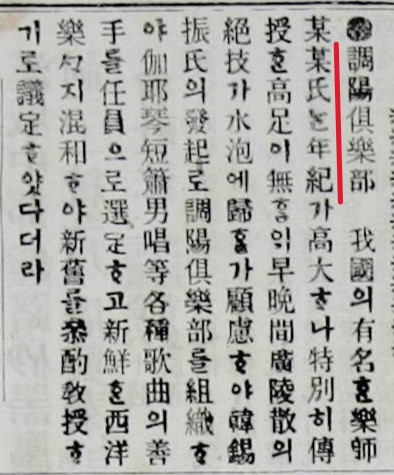 調陽俱樂部 我國의有名ᄒᆞᆫ樂師
某某氏ᄂᆞᆫ年紀가高大ᄒᆞ나特別히傳
授ᄒᆞᆫ高足이無ᄒᆞᆷᄋᆡ早晩間廣陵散의
絕技가水泡에歸ᄒᆞᆯ가顧慮ᄒᆞ야韓錫
振氏의發起로調陽俱樂部를組織ᄒᆞ
야伽耶琴短簫男唱等各種歌曲의善
手를任員으로選定ᄒᆞ고新鮮ᄒᆞᆫ西洋
樂ᄭᆞ지混和ᄒᆞ야新舊를叅酌敎授ᄒᆞ
기로議定ᄒᆞ얏다더라